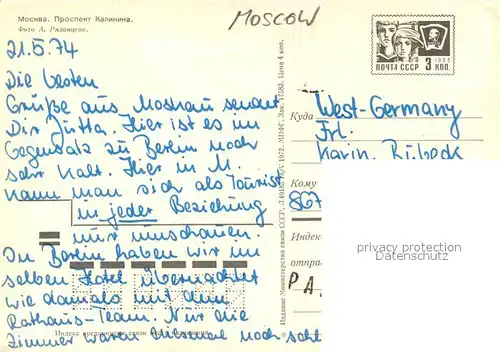 Москва. Проспект Калинина.
Фото А. Рязанцева.
MOSCOW
21.5.74
Die besten
Grüße aus Moskau sendet
Dir Jutta. Hier ist es im
Gegensatz zu Berlin noch
sehr kalt. Hier in M.
kann man sich als Tourist
in jeder Beziehung
nur umschauen.
In Berlin haben wir im
selben Hotel übernachtet
wie damals mit dem
Rathaus-Team. Nur die
Zimmer waren diesmal noch
ПОЧТА СССР 3 КОП.
1966
Куда West-Germany
Frl.
Karin
Кому
867
Индекс
отпра
PA
privacy protection
Datenschutz
Индекс предприятия связи
Издание Министерства связи СССР.
1972. Цена 4 коп.